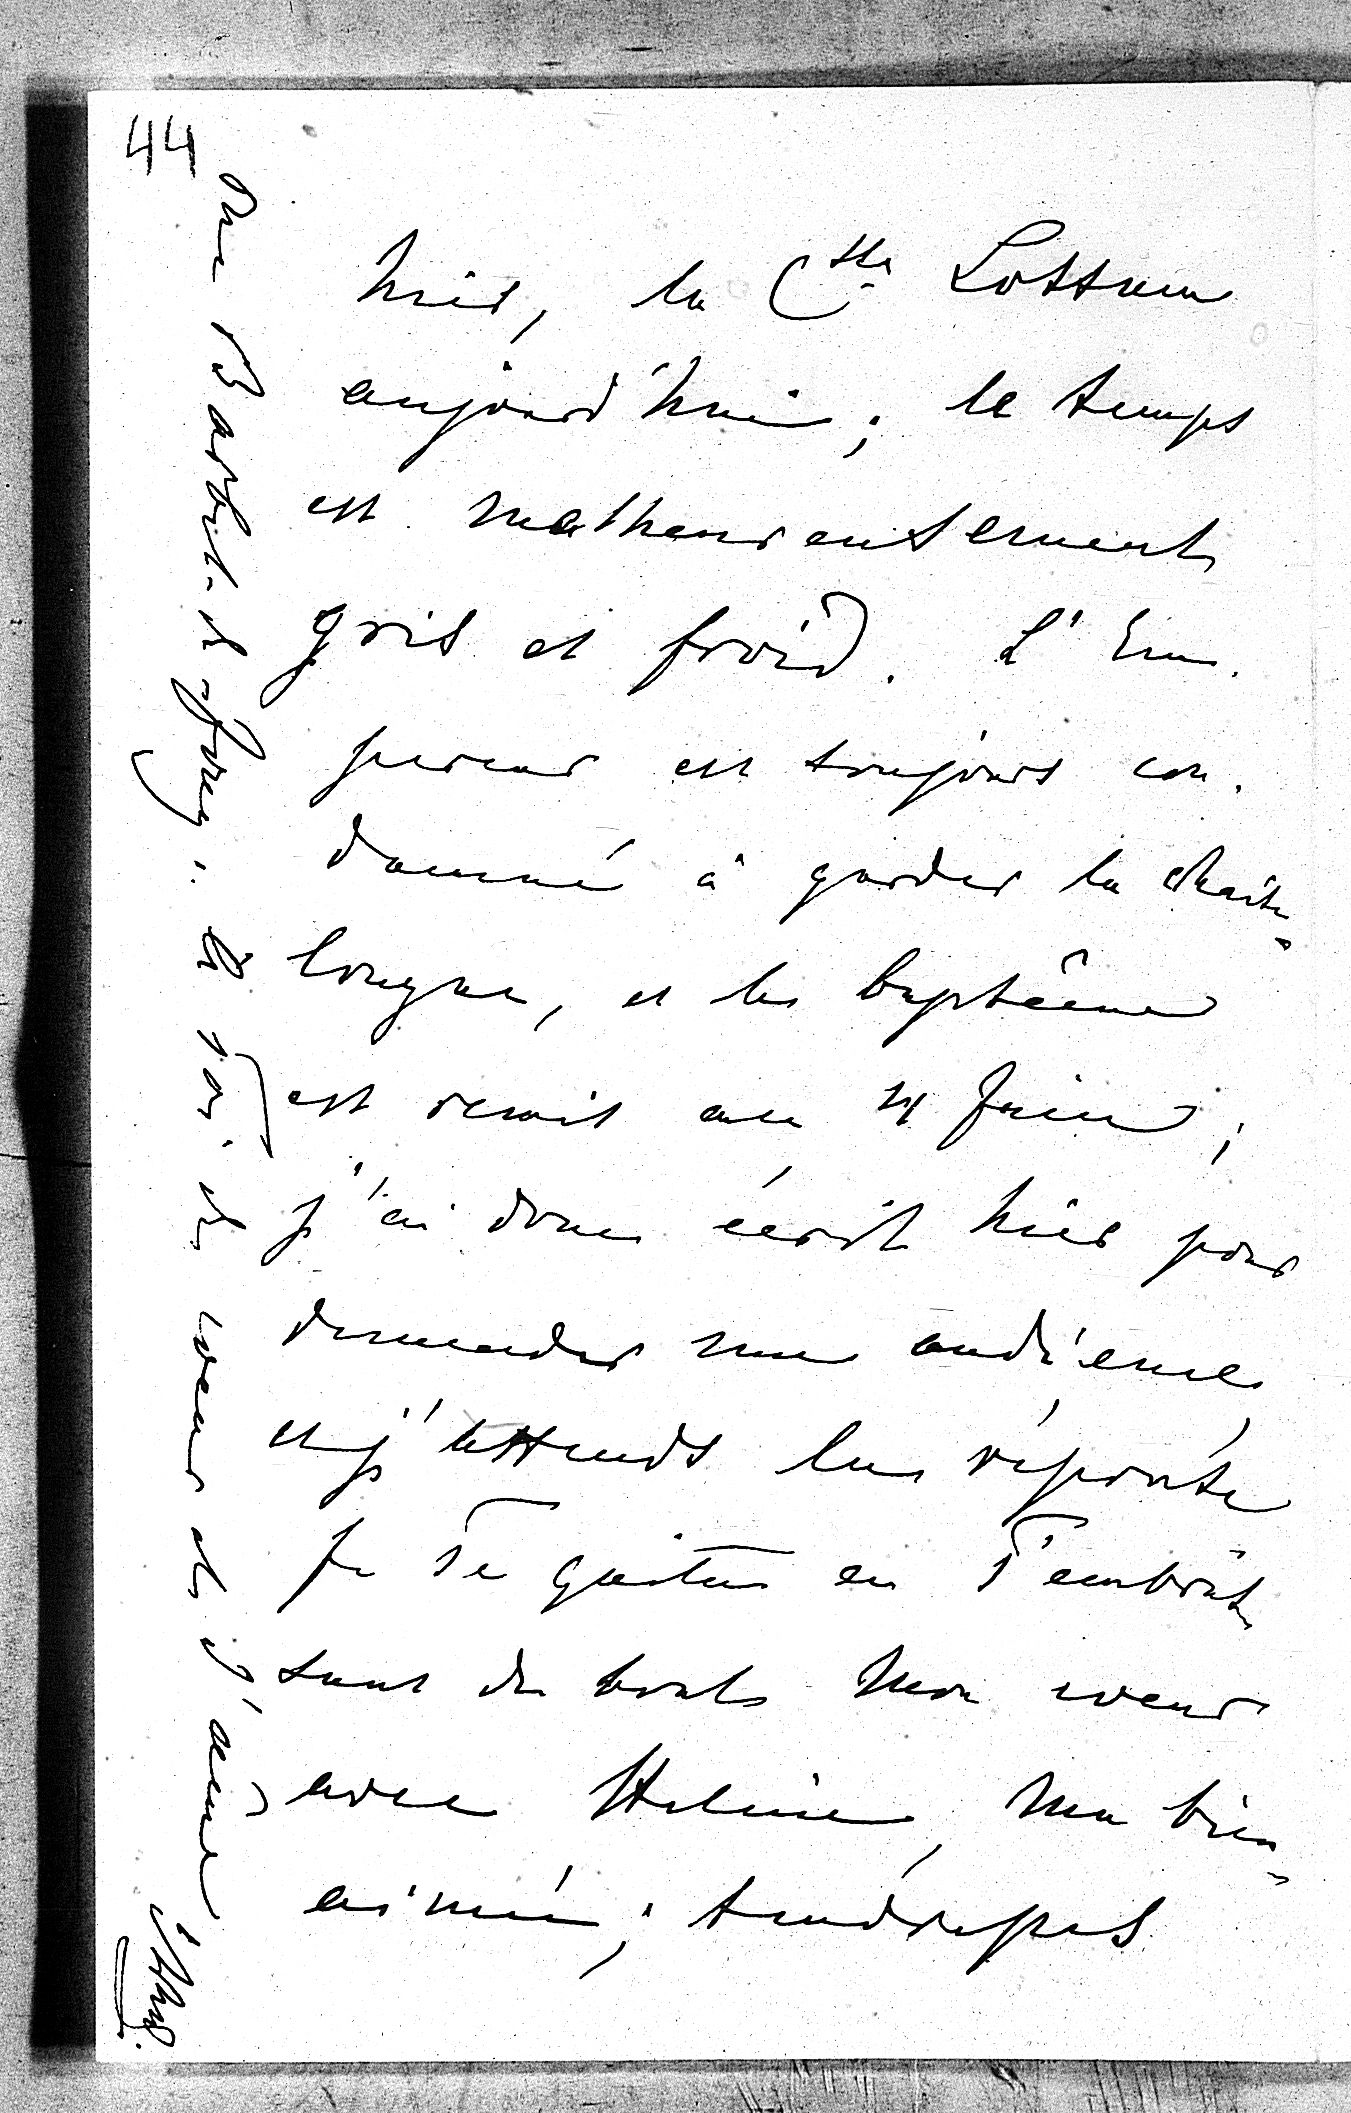 44
hier, la C<sup>tesse</sup> Lottum
aujourd'hui; le temps
est malheureusement
gris et froid. L'Em-
pereur est toujours con-
damné à garder la chaise-
longue, et le baptême
est remis au 14 Juin;
j'ai donc écrit hier pour
demander une audience,
et j'attends la réponse
Je te quitte en t'embras-
sant de tout mon coeur
avec Hélène, ma bien-
aimée;
de toi de coeur et d'âme